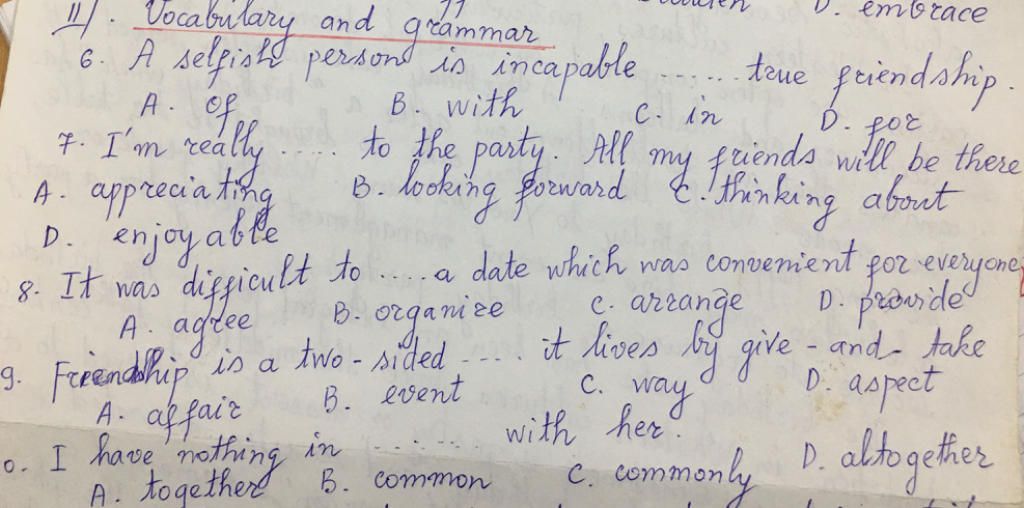 D. embrace
II/. Vocabulary and grammar
6. A selfish person is incapable ..... true friendship.
A. of B. with C. in D. for
7. I'm really ..... to the party. All my friends will be there
A. appreciating B. looking forward C. thinking about
D. enjoyable
8. It was difficult to ..... a date which was convenient for everyone
A. agree B. organize C. arrange D. provide
9. Friendship is a two-sided ..... it lives by give-and-take
A. affair B. event C. way D. aspect
0. I have nothing in ...... with her.
A. together B. common C. commonly D. altogether